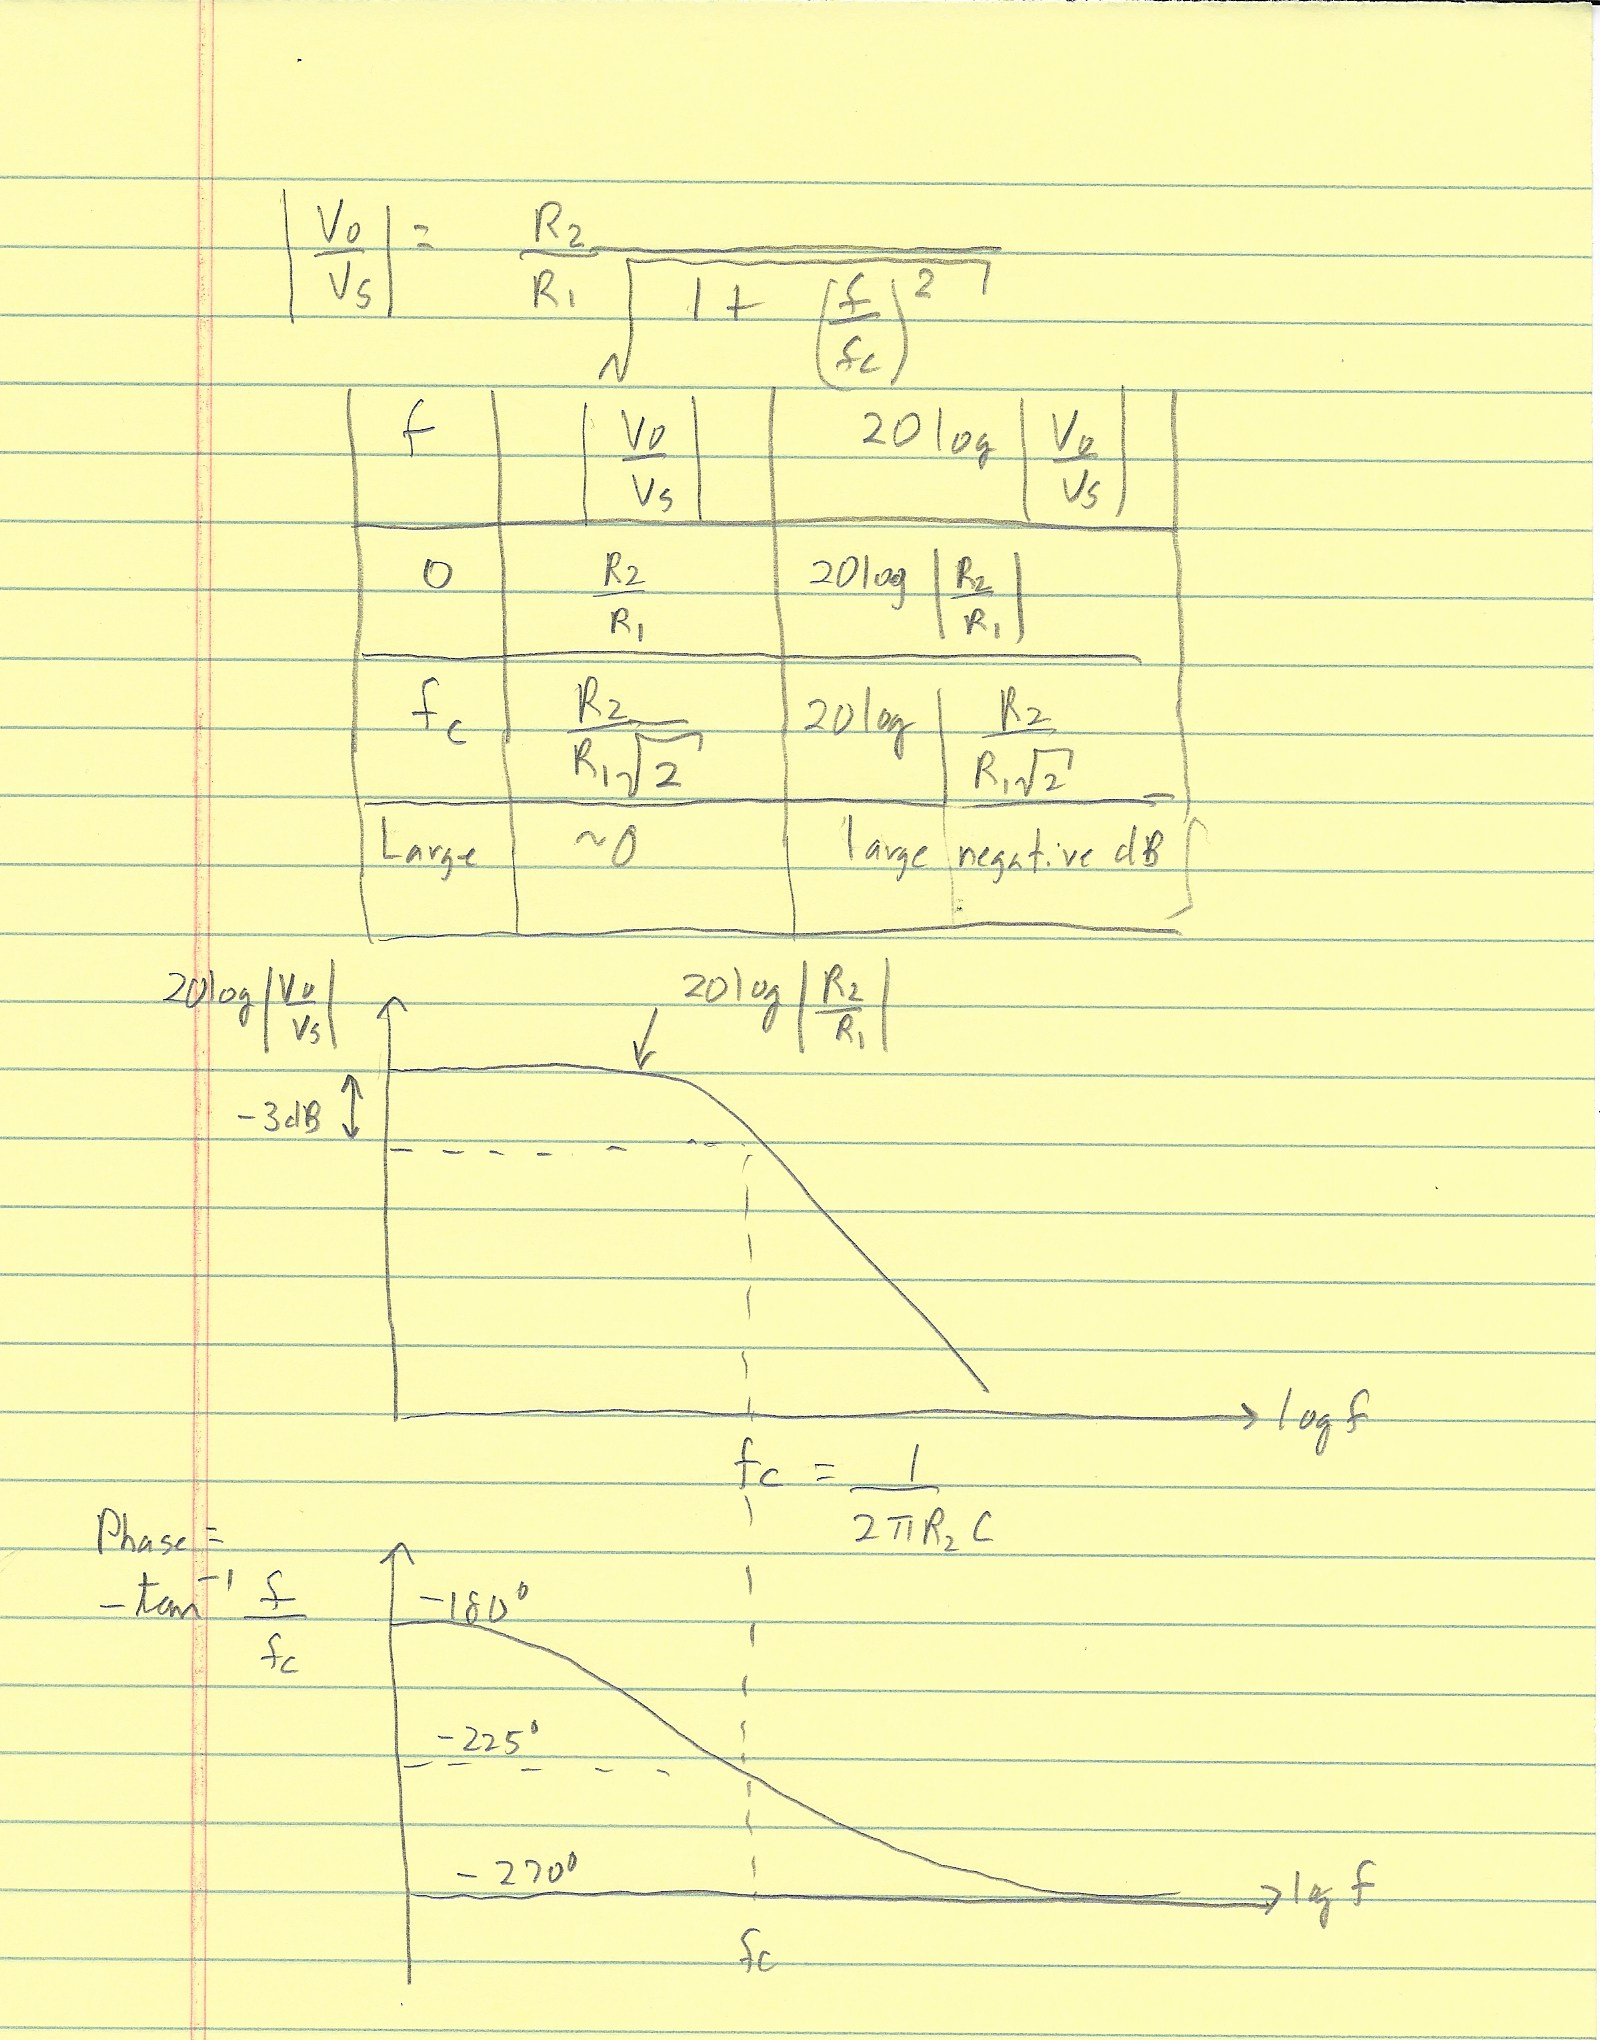 |Vo/Vs| = R2/R1 √(1 + (f/fc)²)
f |Vo/Vs| 20log|Vo/Vs|
0 R2/R1 20log|R2/R1|
fc R2/R1√2 20log|R2/R1√2
Large ~0 large negative dB
20log|Vo/Vs| 20log|R2/R1|
-3dB
log f
fc = 1/2πR2C
Phase =
-tan⁻¹ f/fc
-180°
-225°
-270°
log f
fc